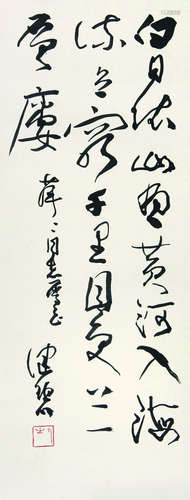 白日依山尽黄河入海
流欲穷千里目更上一
层楼
同志